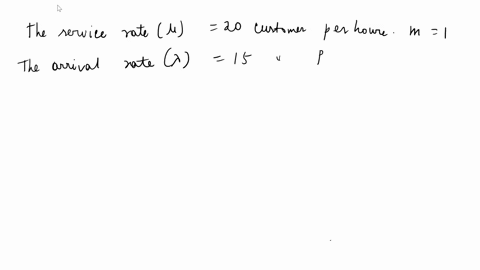 The service rate (μ) = 20 customer per houre. m = 1
The arrival rate (λ) = 15 " p